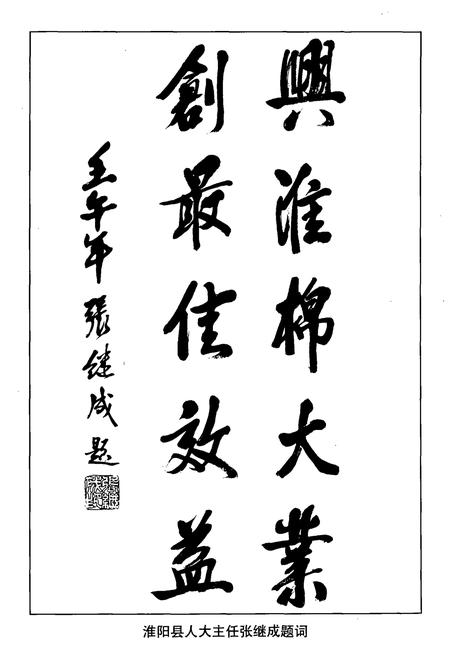 興淮棉大業
創最佳效益
壬午年 張继成题
淮阳县人大主任张继成题词